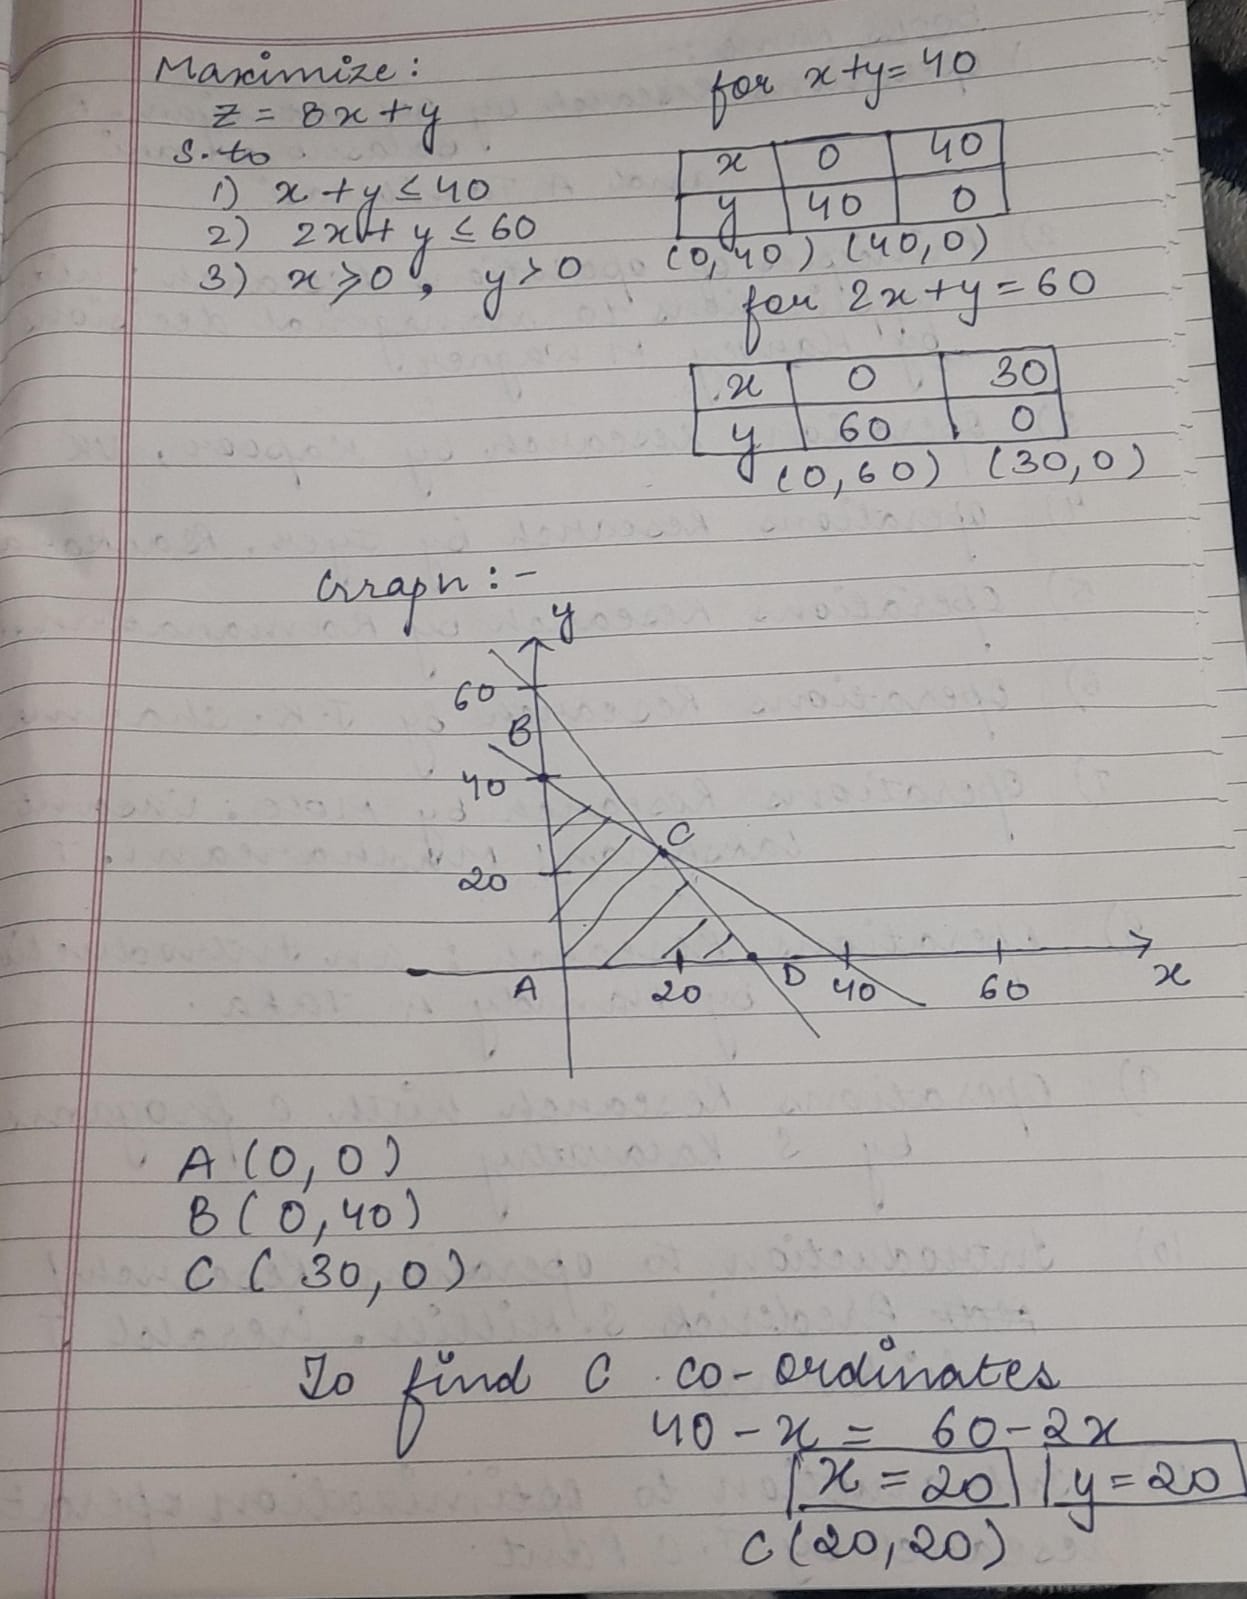 Maximize:
z = 8x + y
S. to
1) x + y ≤ 40
2) 2x + y ≤ 60
3) x ≥ 0, y > 0
for x+y = 40
x 0 40
y 40 0
(0,40) (40,0)
for 2x+y = 60
x 0 30
y 60 0
(0,60) (30,0)
Graph :-
y
60
B
40
C
20
A 20 D 40 60 x
A (0,0)
B (0,40)
C (30,0)
To find C co-ordinates
40 - x = 60 - 2x
x = 20 y = 20
C (20,20)